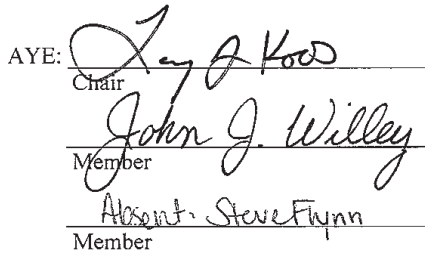 AYE: J Koos
Chair
John J. Willey
Member
Absent. Steve Flynn
Member